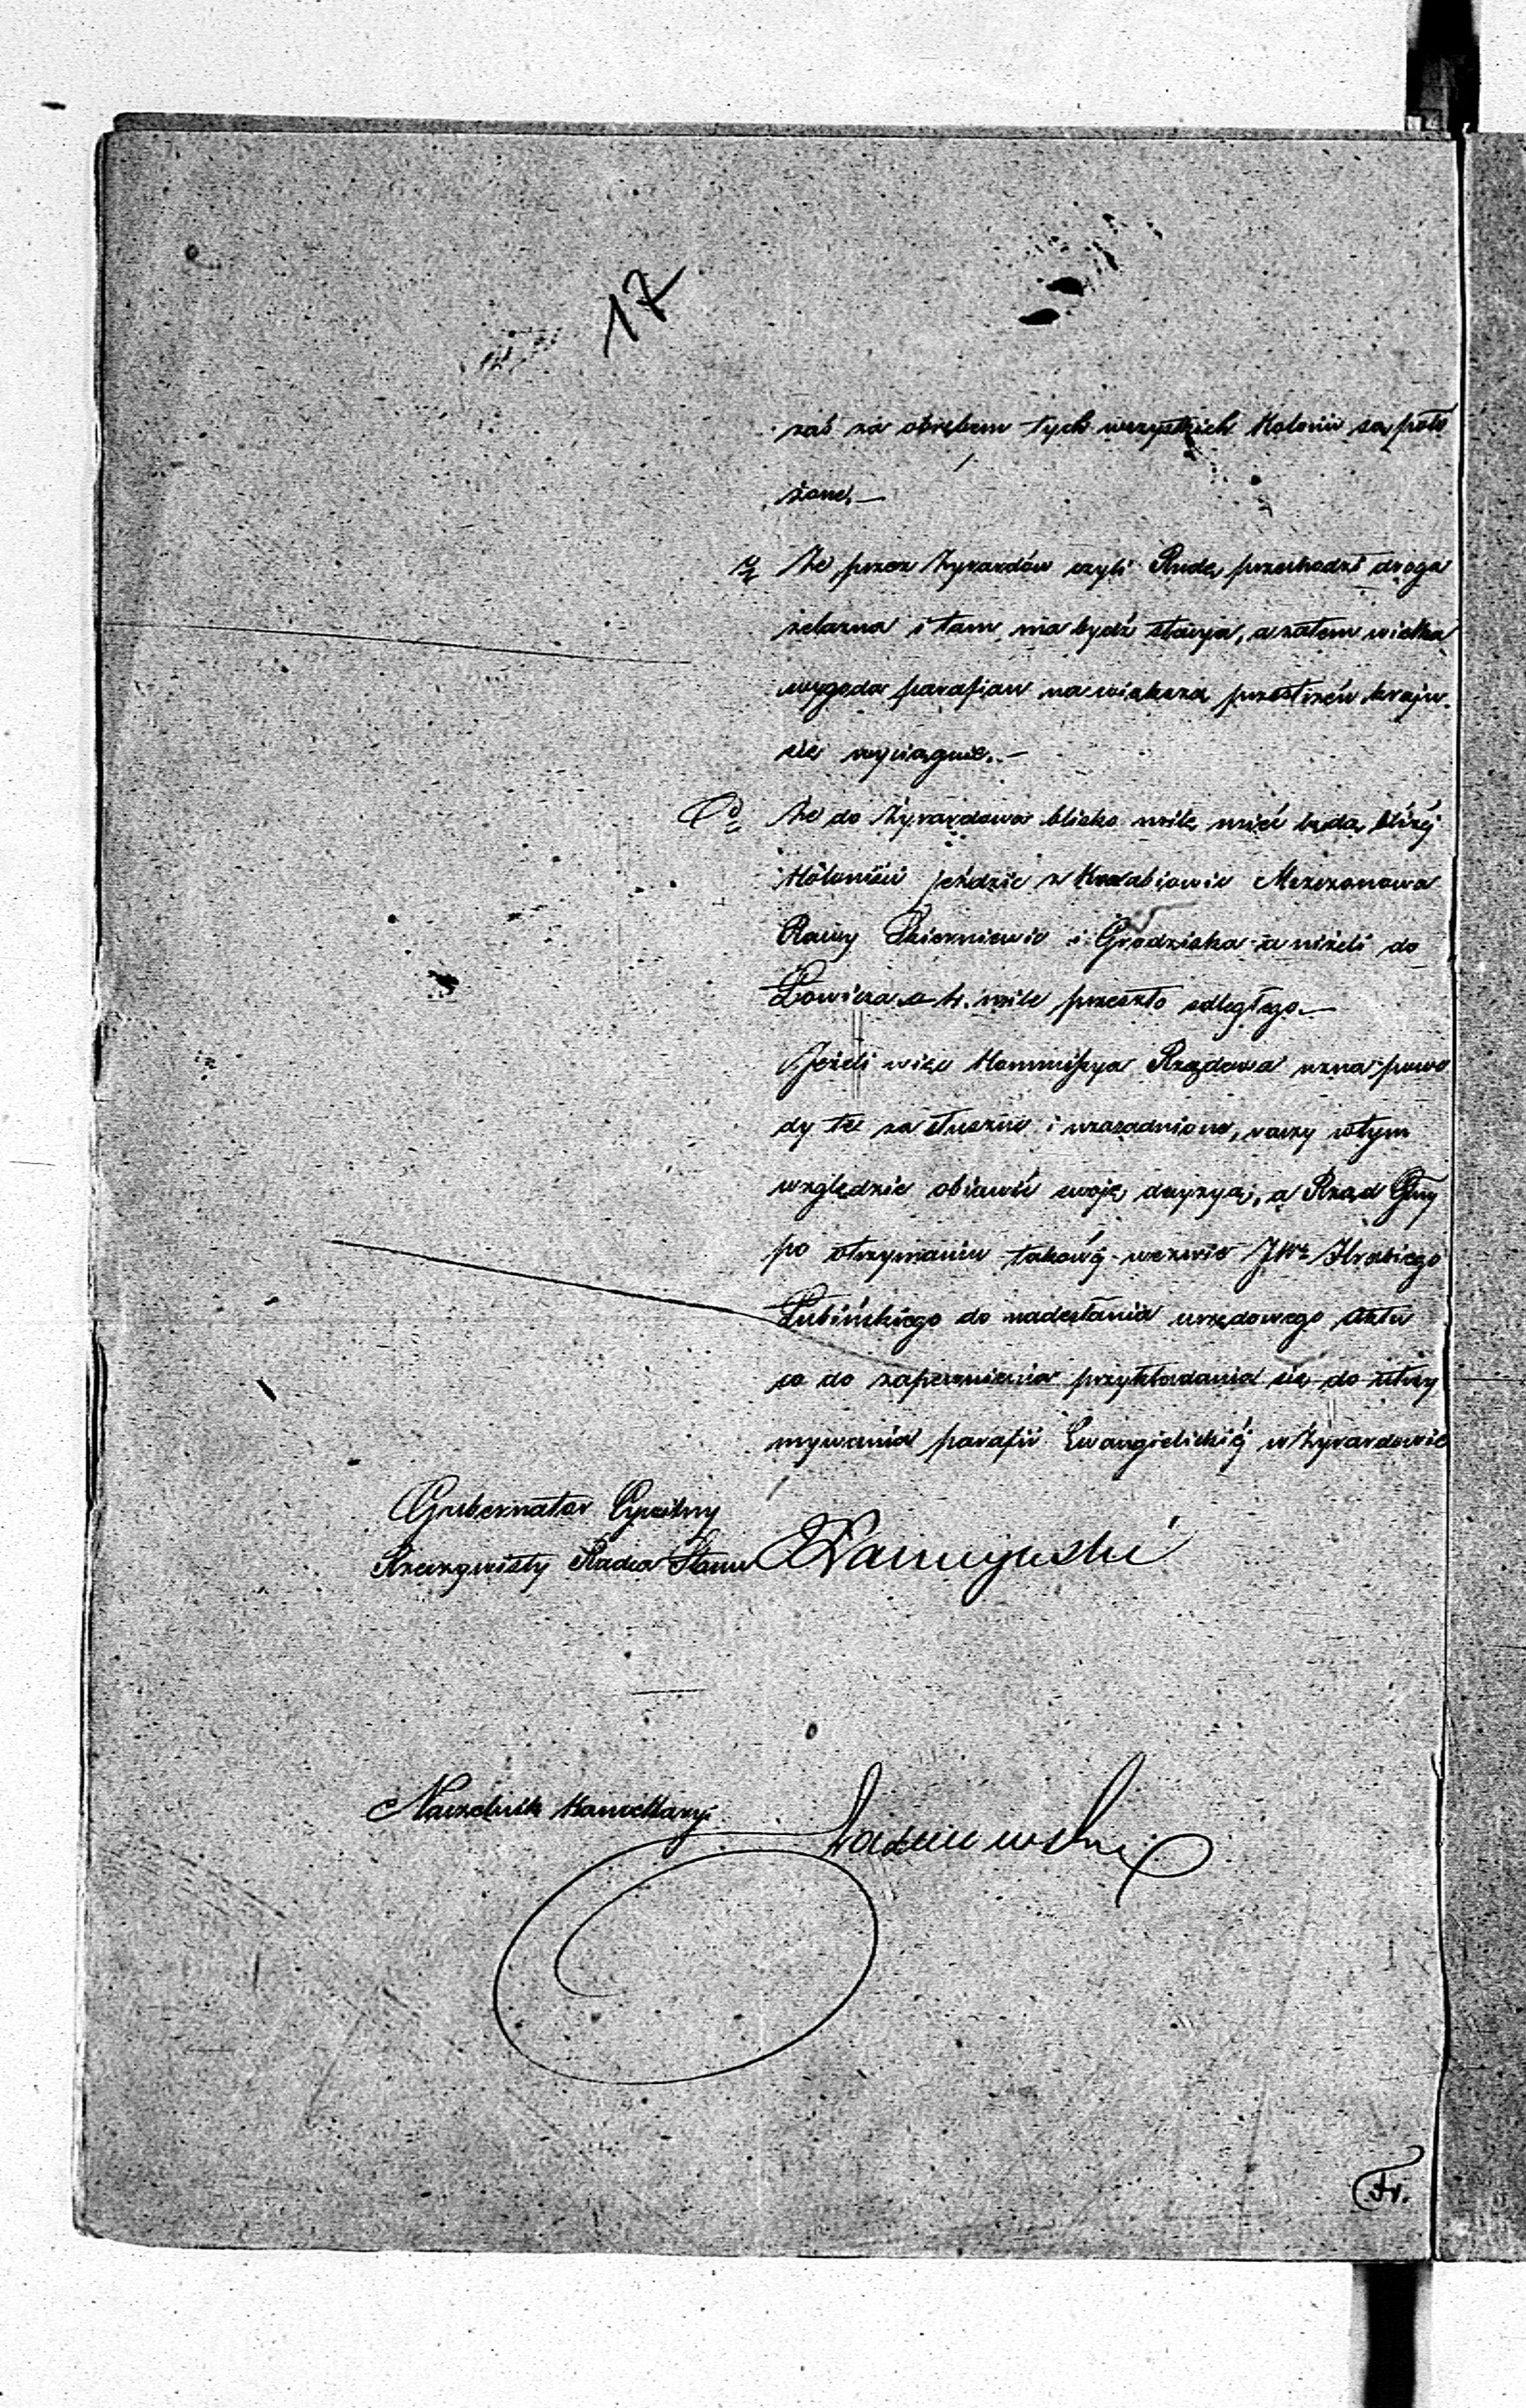 17
zaś za obrębem tych wszystkich Kolonii są poło
żone,—
że przez Żyrardów czyli Rudę przechodzi droga
żelazna i tam ma bydź stacyja, a zatem wielka
wygoda parafian na większą przestrzeń kraju
się wyciągnie.—
że do Żyrardowa blisko milę mieć będą bliżej
Koloniści jeździć z Mszczonowa
Rawy Skierniewic i Grodziska aniżeli do
Łowicza o 4. mile przeszło odległego.—
Jeżeli więc Kommissya Rządowa uzna powo
dy te za słuszne i uzasadnione, raczy w tym
względzie obiawić swoję decyzyą, a Rząd Gny
po otrzymaniu takowéj wezwie JWo Hrabiego
Łubińskiego do nadesłania urzędowego aktu
co do zapewnienia przykładania się do utrzy
mywania parafii Ewangielickiéj w Żyrardowie
Gubernator Cywilny
Rzeczywisty Radca Stanu
Naczelnik Kancellaryi
Fr.